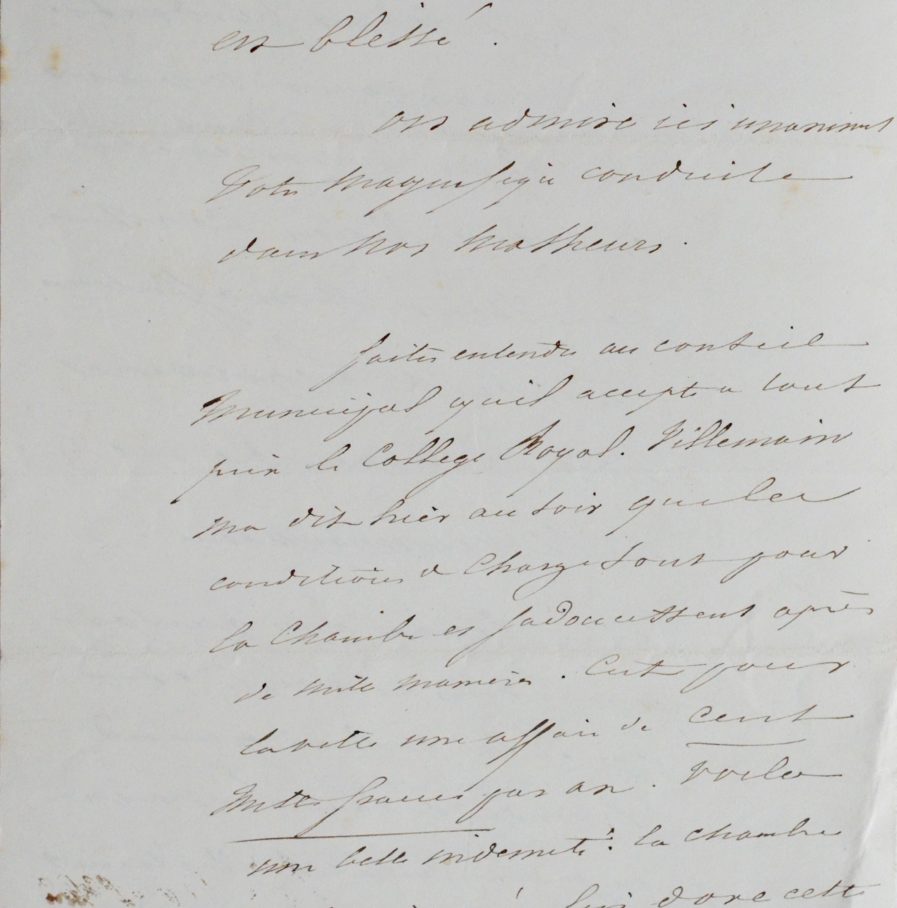 en blessé.
on admire ici unanimmt
Votre magnifique conduite
dans nos malheurs.
faites entendre au conseil
Municipal qu'il accepte a tout
prix le College Royal. Villemain
ma dit hier au soir que les
conditions de charge sont pour
la Chambre et s'adoucissent après
de mille manières. C'est pour
la ville une affaire de cent
Mille francs par an. Voila
une belle indemnité! la chambre
cette